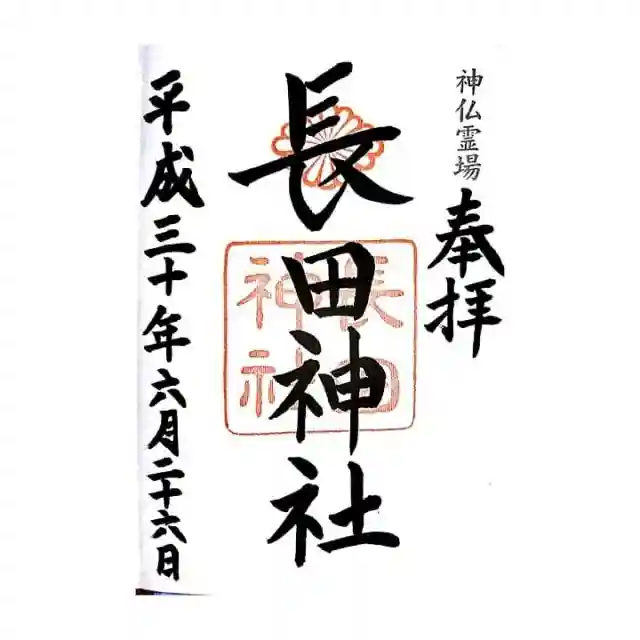 神仏霊場
奉拝
長田神社
長田
神社
平成三十年六月二十六日